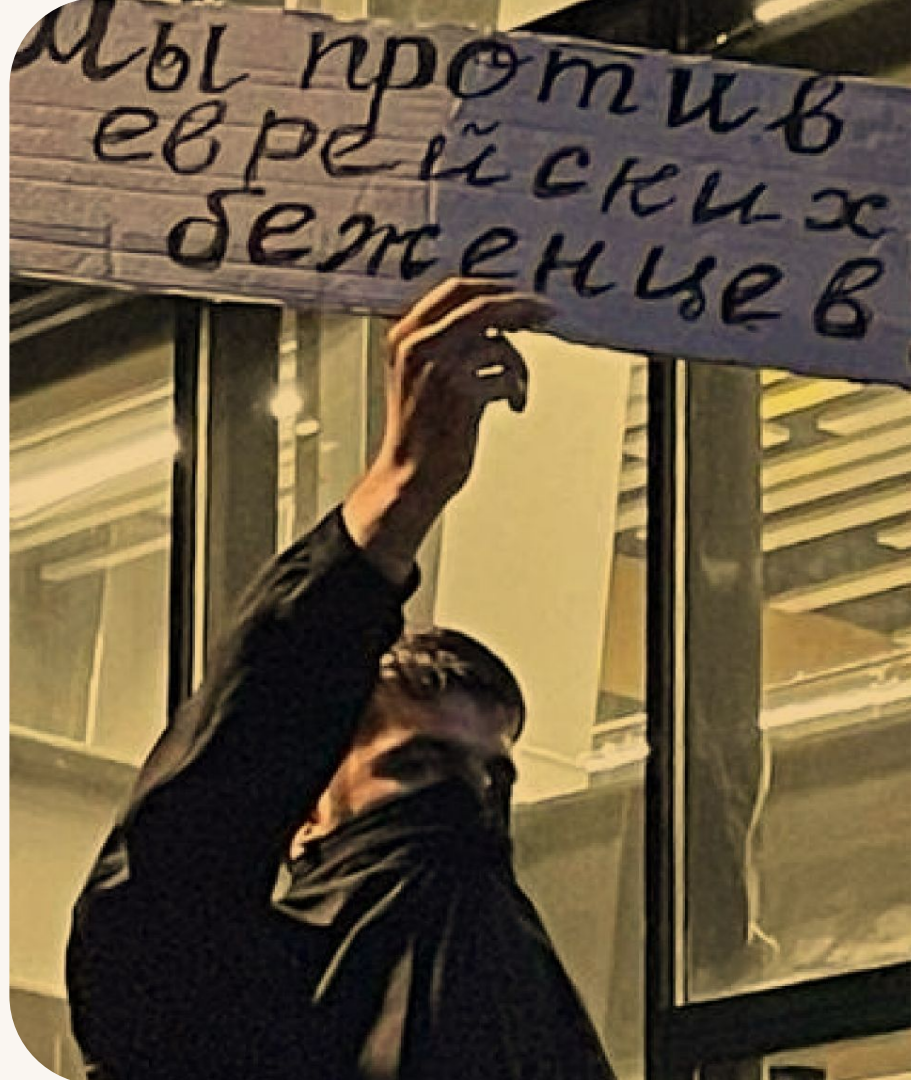 Мы против
еврейских
беженцев